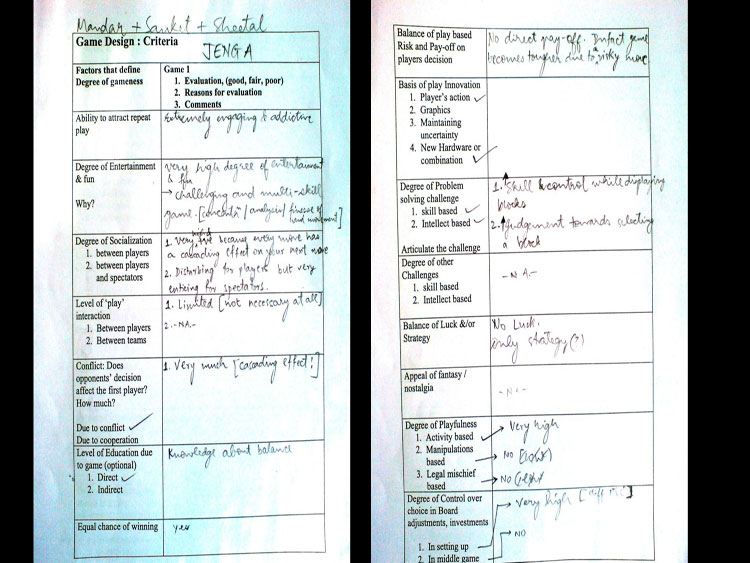 Mandar + Sanket + Sheetal
Game Design : Criteria
JENGA
Factors that define
Degree of gameness
Game 1
1. Evaluation, (good, fair, poor)
2. Reasons for evaluation
3. Comments
Ability to attract repeat
play
Extremely engaging & addictive
Degree of Entertainment
& fun
Why?
very high degree of entertainment
& fun
→ challenging and multi-skill
game. [concentr/ analysis/ finesse of
hand movement]
Degree of Socialization
1. between players
2. between players
and spectators
1. Very because every move has
a cascading effect on your next move
2. Disturbing for players but very
enticing for spectators.
Level of 'play'
interaction
1. Between players
2. Between teams
1. Limited [not necessary at all]
2. -NA.-
Conflict: Does
opponents' decision
affect the first player?
How much?
Due to conflict
Due to cooperation
1. Very much [cascading effect!]
Level of Education due
to game (optional)
1. Direct
2. Indirect
Knowledge about balance
Equal chance of winning
yes
Balance of play based
Risk and Pay-off on
players decision
No direct pay-off. Infact game
becomes tougher due to a risky move
Basis of play Innovation
1. Player's action
2. Graphics
3. Maintaining
uncertainty
4. New Hardware or
combination
Degree of Problem
solving challenge
1. skill based
2. Intellect based
Articulate the challenge
1. Skill & control while displaying
blocks
2. Judgement towards selecting
a block
Degree of other
Challenges
1. skill based
2. Intellect based
-NA.-
Balance of Luck &/or
Strategy
No Luck.
only strategy(?)
Appeal of fantasy /
nostalgia
-NA-
Degree of Playfulness
1. Activity based
2. Manipulations
based
3. Legal mischief
based
Very high
NO
NO
Degree of Control over
choice in Board
adjustments, investments
1. In setting up
2. In middle game
Very high
NO